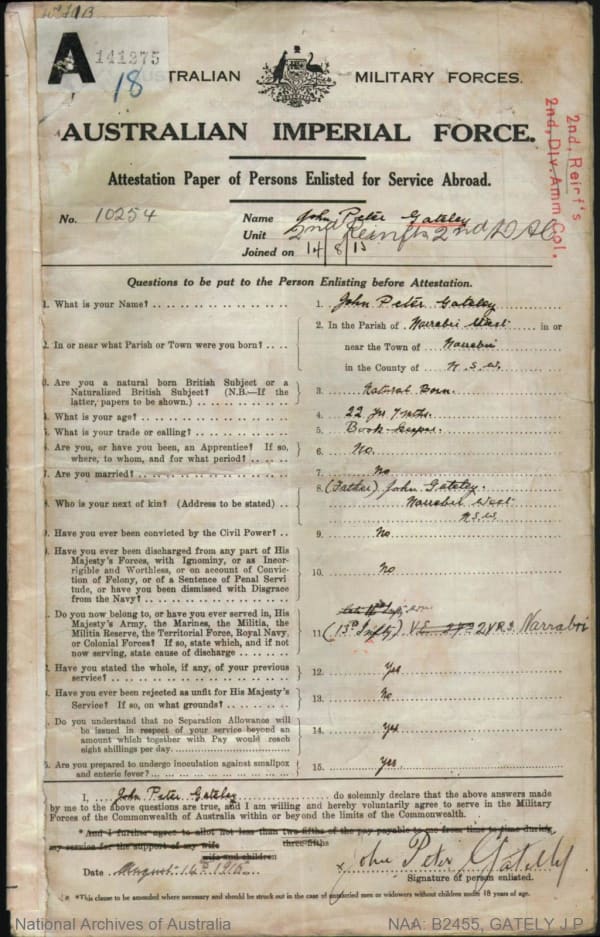 A
141275
18
AUSTRALIAN MILITARY FORCES.
AUSTRALIAN IMPERIAL FORCE.
2nd. Reinf's
2nd. Div. Amm. Col.
Attestation Paper of Persons Enlisted for Service Abroad.
No. 10254
Name John Peter Gateley
Unit 2nd Reinfts 2nd D A C
Joined on 14/8/15
Questions to be put to the Person Enlisting before Attestation.
1. What is your Name? 1. John Peter Gateley
2. In or near what Parish or Town were you born? 2. In the Parish of Narrabri West in or
near the Town of Narrabri
in the County of N.S.W.
3. Are you a natural born British Subject or a
Naturalized British Subject? (N.B.—If the
latter, papers to be shown.) 3. Natural Born.
4. What is your age? 4. 22 yrs 7 mths.
5. What is your trade or calling? 5. Book-keeper.
6. Are you, or have you been, an Apprentice? If so,
where, to whom, and for what period? 6. No.
7. Are you married? 7. No
8. Who is your next of kin? (Address to be stated) 8. (Father) John Gateley.
Narrabri West
N.S.W.
9. Have you ever been convicted by the Civil Power? 9. No
Have you ever been discharged from any part of His
Majesty's Forces, with Ignominy, or as Incor-
rigible and Worthless, or on account of Convic-
tion of Felony, or of a Sentence of Penal Servi
tude, or have you been dismissed with Disgrace
from the Navy? 10. No
Do you now belong to, or have you ever served in, His
Majesty's Army, the Marines, the Militia, the
Militia Reserve, the Territorial Force, Royal Navy,
or Colonial Forces? If so, state which, and if not
now serving, state cause of discharge 11. (13th Infty) Narrabri
Have you stated the whole, if any, of your previous
service? 12. Yes
Have you ever been rejected as unfit for His Majesty's
Service? If so, on what grounds? 13. No
Do you understand that no Separation Allowance will
be issued in respect of your service beyond an
amount which together with Pay would reach
eight shillings per day. 14. Yes
Are you prepared to undergo inoculation against smallpox
and enteric fever? 15. Yes
I, John Peter Gateley do solemnly declare that the above answers made
by me to the above questions are true, and I am willing and hereby voluntarily agree to serve in the Military
Forces of the Commonwealth of Australia within or beyond the limits of the Commonwealth.
*And I further agree to allot not less than two-fifths of the pay payable to me from time to time during
three-fifths
my service for the support of my wife
wife and children
Date August 16th 1915. x John Peter Gatelly
Signature of person enlisted.
*This clause to be amended where necessary and should be struck out in the case of unmarried men or widowers without children under 18 years of age.
National Archives of Australia
NAA: B2455, GATELY J P